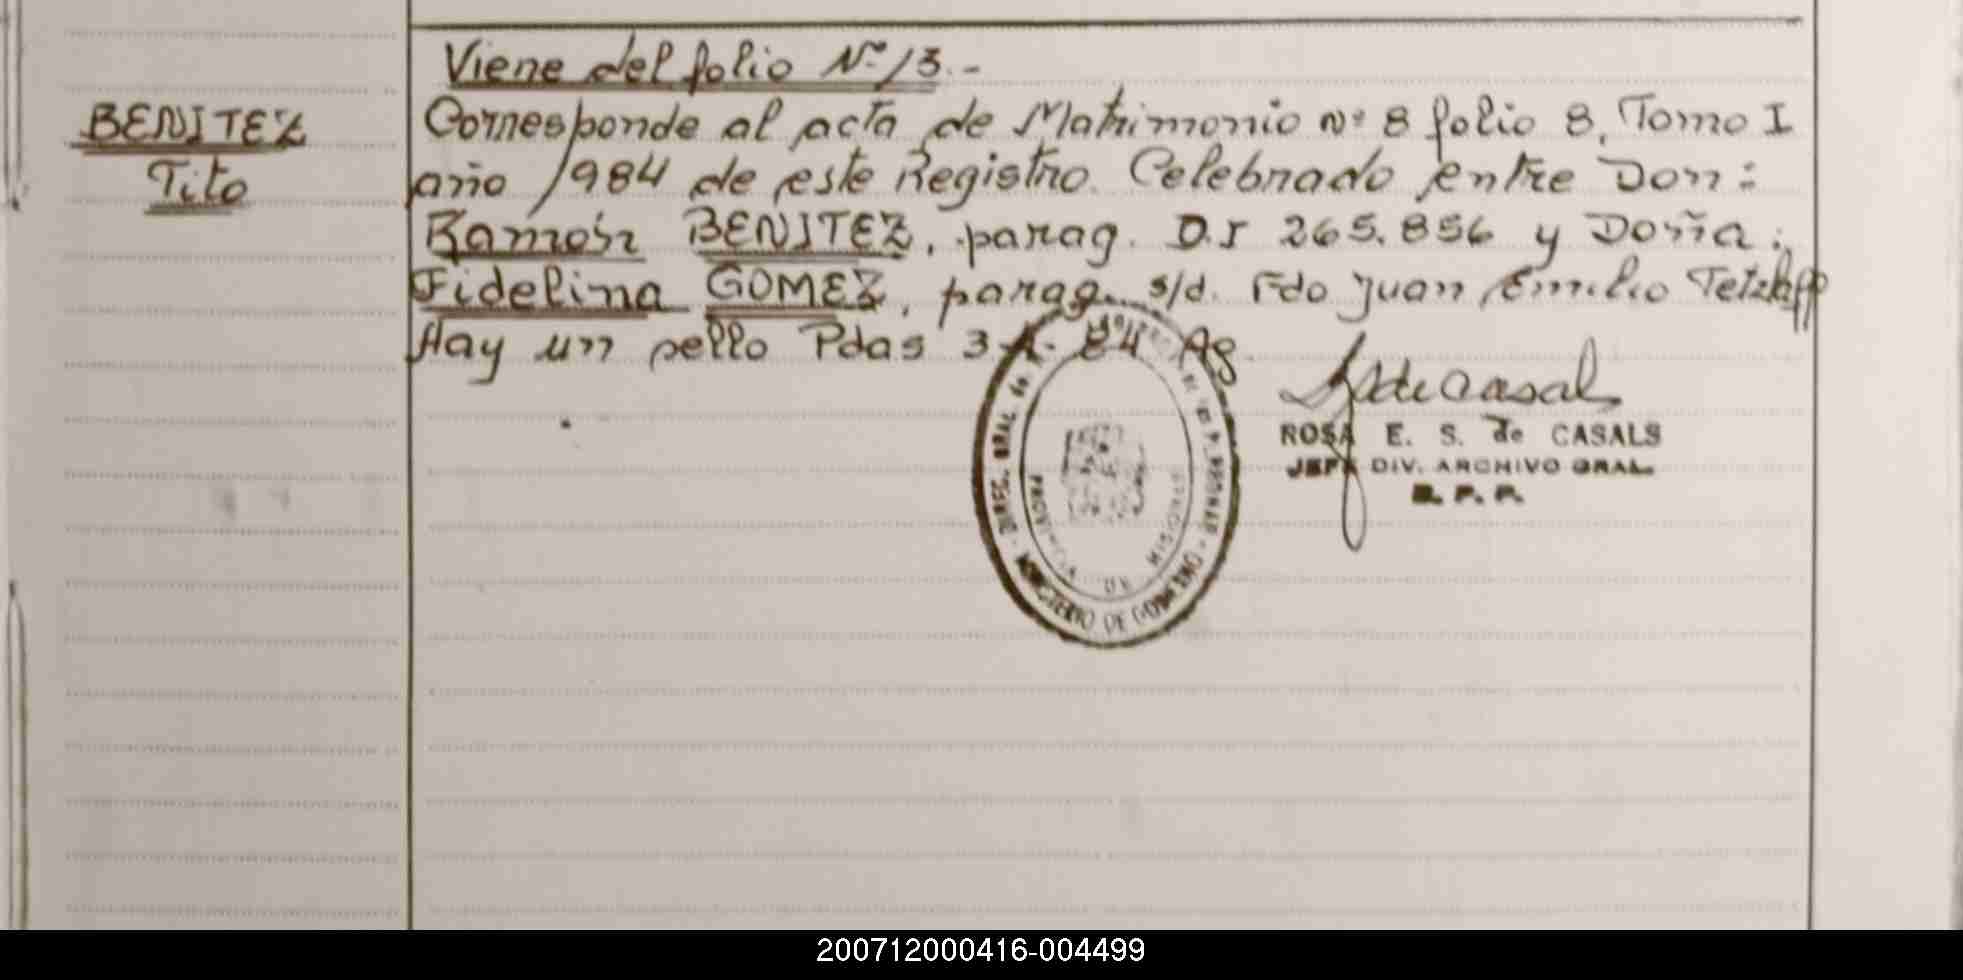 Viene del folio Nº 13.-
BENITEZ
Tito
Corresponde al acta de Matrimonio nº 8 folio 8, Tomo I
año 1984 de este Registro. Celebrado entre Don:
Ramón BENITEZ, parag. D.I 265.856 y Doña:
Fidelina GOMEZ, parag. s/d. Fdo Juan Emilio Tetzlaff
Hay un sello Pdas 3 84 Ag.
ROSA E. S. de CASALS
JEFA DIV. ARCHIVO GRAL.
R. P. P.
DIREC. GRAL. de - MINISTERIO DE GOBIERNO -
PROVINCIA DE MISIONES
200712000416-004499